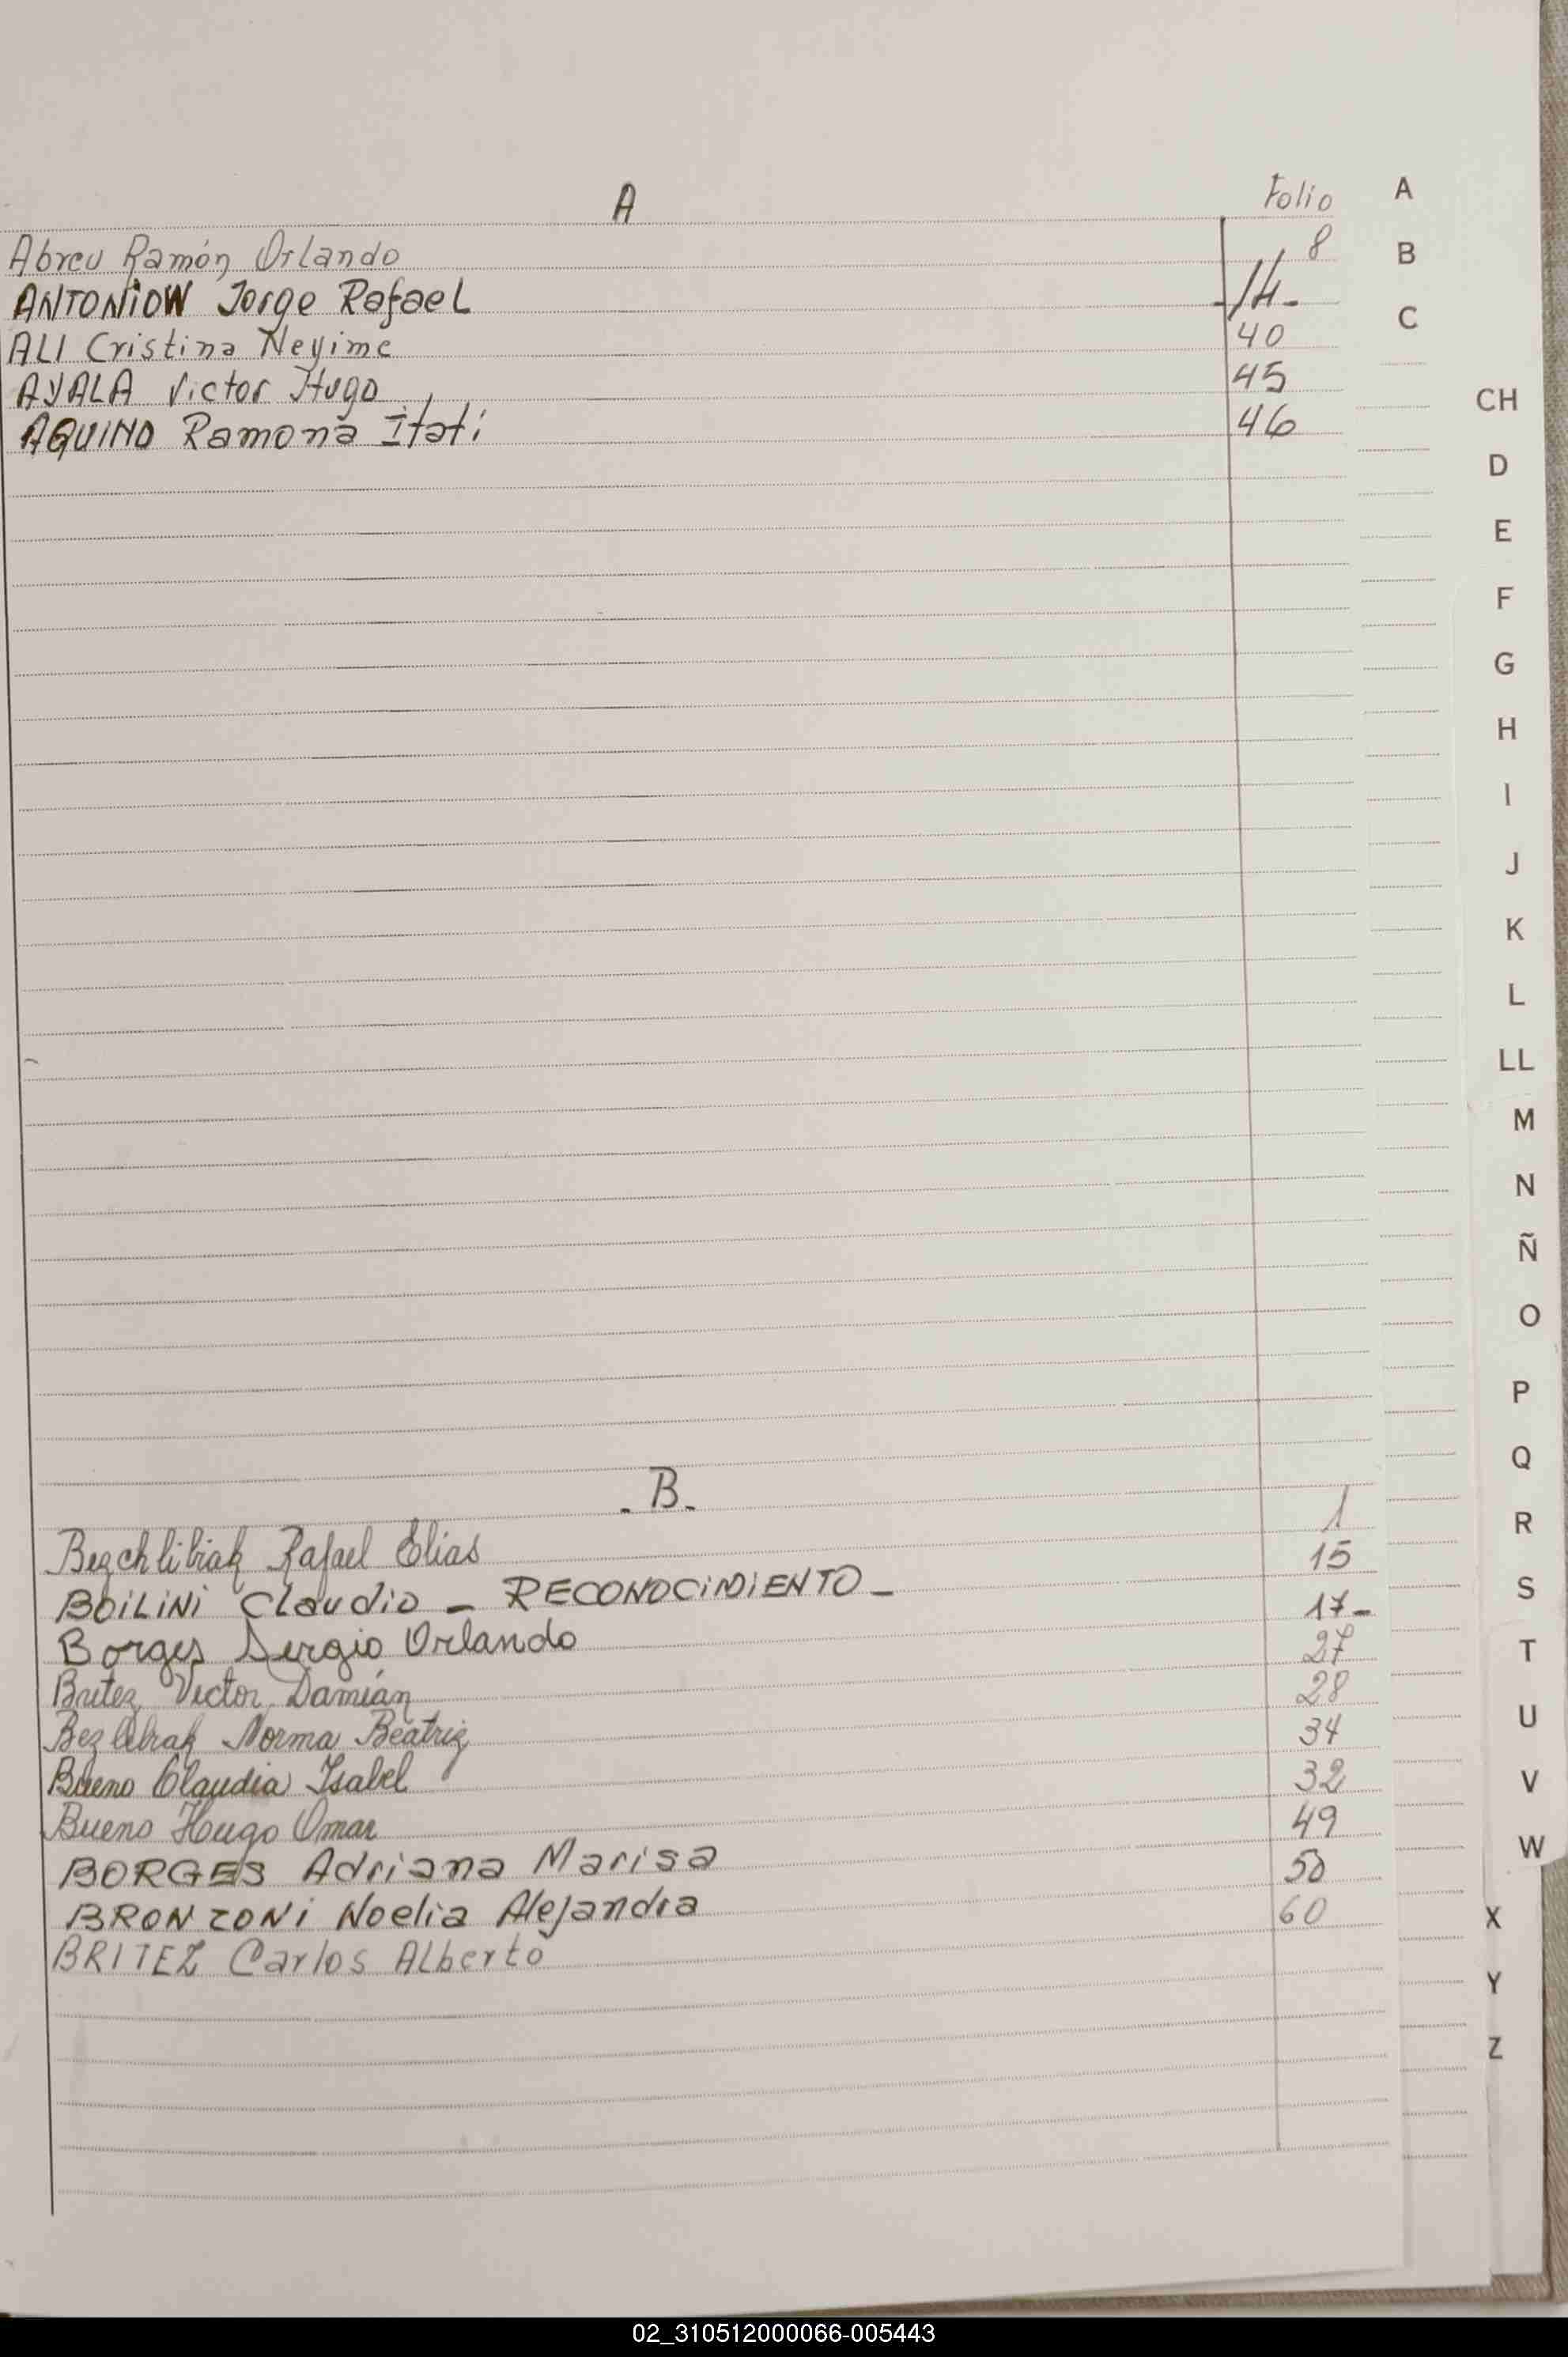 A Folio
Abreu Ramón Orlando 8
ANTONiOW Jorge Rafael -14-
ALI Cristina Neyime 40
AYALA Victor Hugo 45
AQUINO Ramona Itatí 46
. B.
Bezchlibiak Rafael Elias 1
BOiLiNi Claudio - RECONOCiMiENTO - 15
Borges Sergio Orlando 17-
Britez Victor Damián 27
Norma Beatriz 28
Bueno Claudia Isabel 34
Bueno Hugo Omar 32
BORGES Adriana Marisa 49
BRONZONi Noelia Alejandra 50
BRITEZ Carlos Alberto 60
A
B
C
CH
D
E
F
G
H
I
J
K
L
LL
M
N
Ñ
O
P
Q
R
S
T
U
V
W
X
Y
Z
02_310512000066-005443